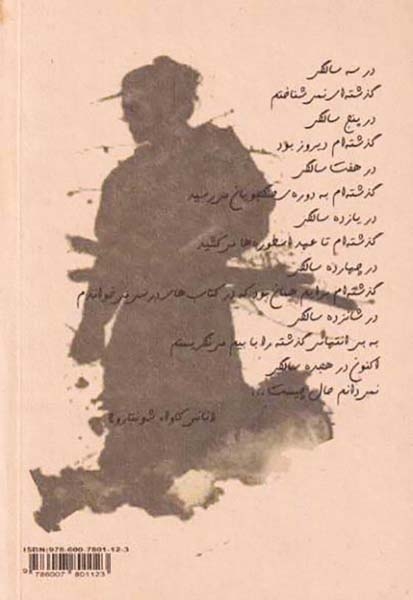 در سه سالگی
گذشته‌ای نمی‌شناختم
در پنج سالگی
گذشته‌ام دیروز بود
در هفت سالگی
گذشته‌ام به دوره‌ی جنگجویان می‌رسید
در یازده سالگی
گذشته‌ام تا عهد اسطوره‌ها می‌کشید
در چهارده سالگی
گذشته‌ام برایم همان بود که در کتاب‌های درسی می‌خواندم
در شانزده سالگی
به بی انتهایی گذشته را با بیم می‌نگریستم
اکنون در هجده سالگی
نمی‌دانم حال چیست...
(تانی‌کاوا، شونتارو)
ISBN:978-600-7801-12-3
9 786007 801123